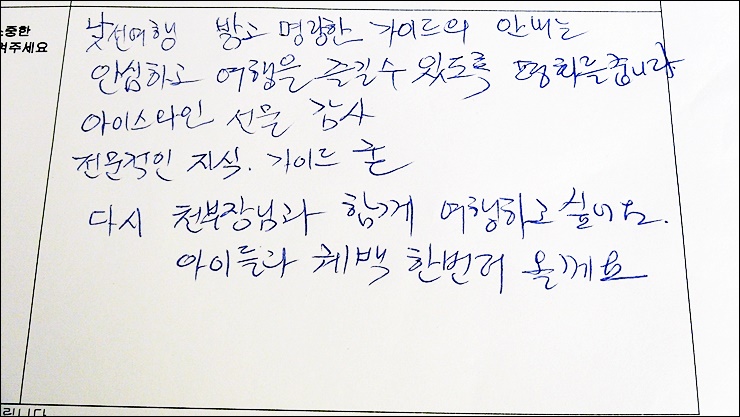 소중한
겨주세요
낯선여행 밝고 명랑한 가이드의 안내는
안심하고 여행을 즐길수 있도록 평화를줍니다
아이스와인 선물 감사
전문적인 지식. 가이드 굳
다시 천부장님과 함께 여행하고 싶어요.
아이들과 퀘백 한번더 올께요